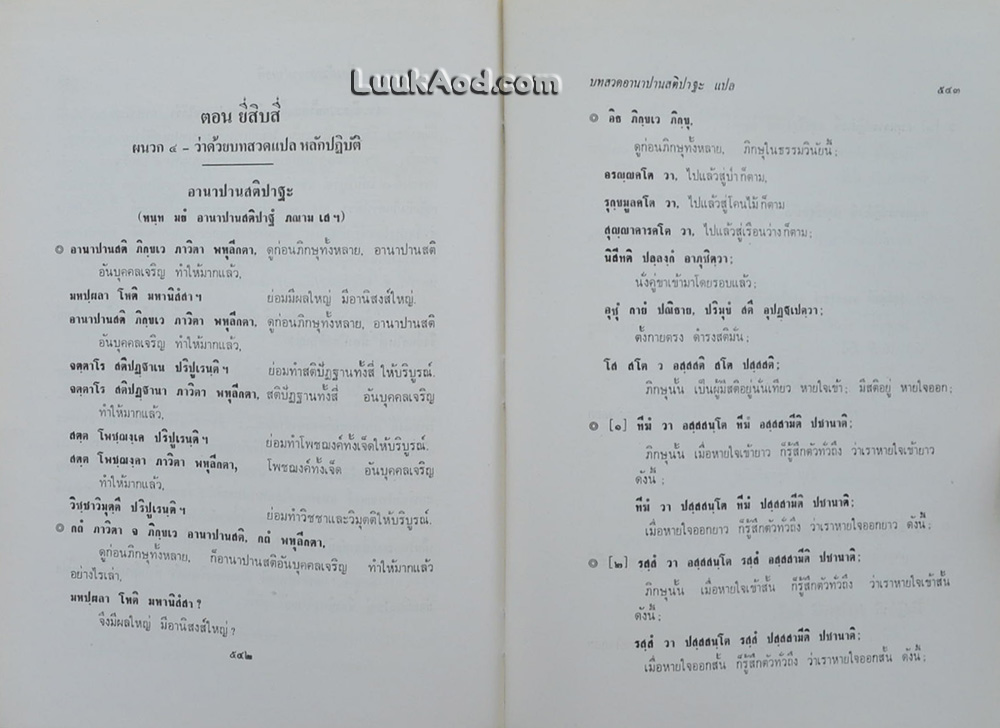 LuukAod.com
ตอน ยี่สิบสี่
ผนวก ๔ - ว่าด้วยบทสวดแปล หลักปฏิบัติ
อานาปานสติปาฐะ
(หนฺท มยํ อานาปานสติปาฐํ ภณาม เส ฯ)
๏ อานาปานสติ ภิกฺขเว ภาวิตา พหุลีกตา, ดูก่อนภิกษุทั้งหลาย, อานาปานสติ
อันบุคคลเจริญ ทำให้มากแล้ว,
มหปฺผลา โหติ มหานิสํสา ฯ ย่อมมีผลใหญ่ มีอานิสงส์ใหญ่.
อานาปานสติ ภิกฺขเว ภาวิตา พหุลีกตา, ดูก่อนภิกษุทั้งหลาย, อานาปานสติ
อันบุคคลเจริญ ทำให้มากแล้ว,
จตฺตาโร สติปฏฺฐาเน ปริปูเรนฺติ ฯ ย่อมทำสติปัฏฐานทั้งสี่ ให้บริบูรณ์.
จตฺตาโร สติปฏฺฐานา ภาวิตา พหุลีกตา, สติปัฏฐานทั้งสี่ อันบุคคลเจริญ
ทำให้มากแล้ว,
สตฺต โพชฺฌงฺเค ปริปูเรนฺติ ฯ ย่อมทำโพชฌงค์ทั้งเจ็ดให้บริบูรณ์.
สตฺต โพชฺฌงฺคา ภาวิตา พหุลีกตา, โพชฌงค์ทั้งเจ็ด อันบุคคลเจริญ
ทำให้มากแล้ว,
วิชฺชาวิมุตฺตึ ปริปูเรนฺติ ฯ ย่อมทำวิชชาและวิมุตติให้บริบูรณ์.
๏ กถํ ภาวิตา จ ภิกฺขเว อานาปานสติ, กถํ พหุลีกตา,
ดูก่อนภิกษุทั้งหลาย, ก็อานาปานสติอันบุคคลเจริญ ทำให้มากแล้ว
อย่างไรเล่า,
มหปฺผลา โหติ มหานิสํสา ?
จึงมีผลใหญ่ มีอานิสงส์ใหญ่ ?
๕๔๒
บทสวดอานาปานสติปาฐะ แปล ๕๔๓
๏ อิธ ภิกฺขเว ภิกฺขุ,
ดูก่อนภิกษุทั้งหลาย, ภิกษุในธรรมวินัยนี้ ;
อรญฺญคโต วา, ไปแล้วสู่ป่าก็ตาม,
รุกฺขมูลคโต วา, ไปแล้วสู่โคนไม้ก็ตาม
สุญฺญาคารคโต วา, ไปแล้วสู่เรือนว่างก็ตาม ;
นิสีทติ ปลฺลงฺกํ อาภุชิตฺวา ;
นั่งคู้ขาเข้ามาโดยรอบแล้ว ;
อุชุํ กายํ ปณิธาย, ปริมุขํ สตึ อุปฏฺฐเปตฺวา ;
ตั้งกายตรง ดำรงสติมั่น ;
โส สโต ว อสฺสสติ สโต ปสฺสสติ ;
ภิกษุนั้น เป็นผู้มีสติอยู่นั่นเทียว หายใจเข้า ; มีสติอยู่ หายใจออก ;
๏ [๑] ทีฆํ วา อสฺสสนฺโต ทีฆํ อสฺสสามีติ ปชานาติ ;
ภิกษุนั้น เมื่อหายใจเข้ายาว ก็รู้สึกตัวทั่วถึง ว่าเราหายใจเข้ายาว
ดังนี้ ;
ทีฆํ วา ปสฺสสนฺโต ทีฆํ ปสฺสสามีติ ปชานาติ ;
เมื่อหายใจออกยาว ก็รู้สึกตัวทั่วถึง ว่าเราหายใจออกยาว ดังนี้ ;
๏ [๒] รสฺสํ วา อสฺสสนฺโต รสฺสํ อสฺสสามีติ ปชานาติ ;
ภิกษุนั้น เมื่อหายใจเข้าสั้น ก็รู้สึกตัวทั่วถึง ว่าเราหายใจเข้าสั้น
ดังนี้ ;
รสฺสํ วา ปสฺสสนฺโต รสฺสํ ปสฺสสามีติ ปชานาติ ;
เมื่อหายใจออกสั้น ก็รู้สึกตัวทั่วถึง ว่าเราหายใจออกสั้น ดังนี้ ;